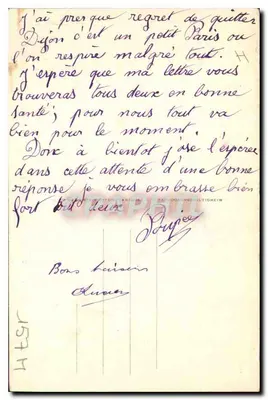 J'ai presque regret de quitter
Dijon c'est un petit Paris ou
l'on respire malgré tout.
J'espère que ma lettre vous
trouveras tous deux en bonne
santé; pour nous tout va
bien pour le moment.
Donc à bientot j'ose l'espérer
dans cette attente d'une bonne
réponse je vous embrasse bien
fort
Bons baisers
J574